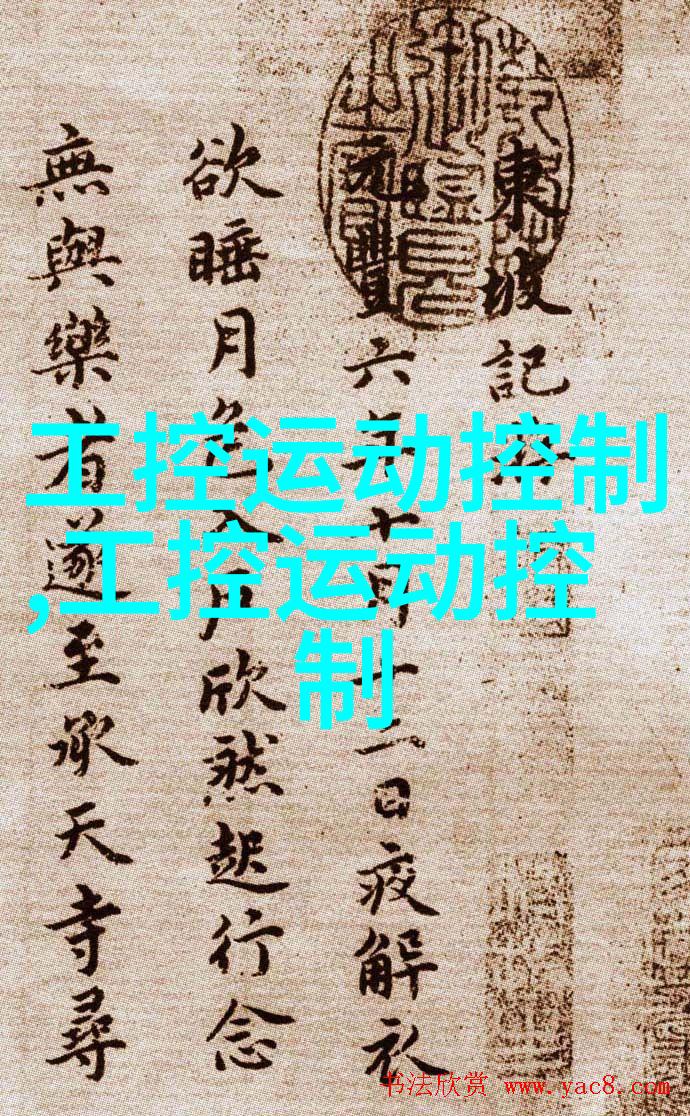 工控运动控制
,工控运动控
制
東坡記
元豐六年十月十二日夜解衣
欲睡月色入户欣然起行念
無與樂者遂至承天寺尋
书法欣赏 www.yac8.com